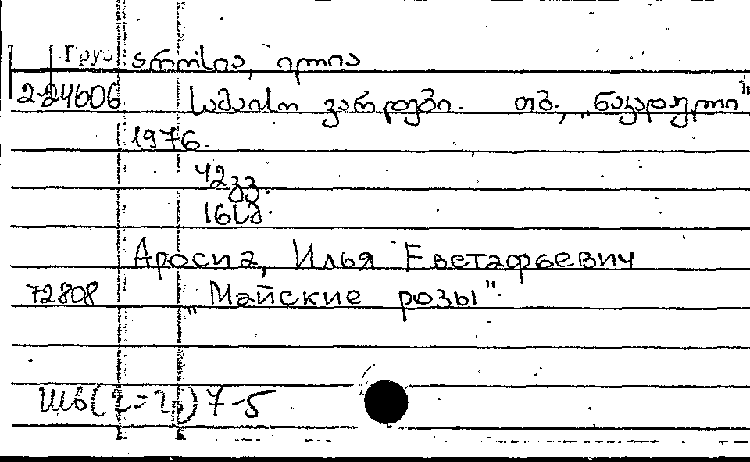 Груз არონია, ილია
2-24606 სამაისო ვარდები. თბ., „ნაკადული"
1976.
42გვ.
16სმ.
Аросиа, Илья Евстафьевич
72808 „Майские розы".
Шв(2=2)7-5